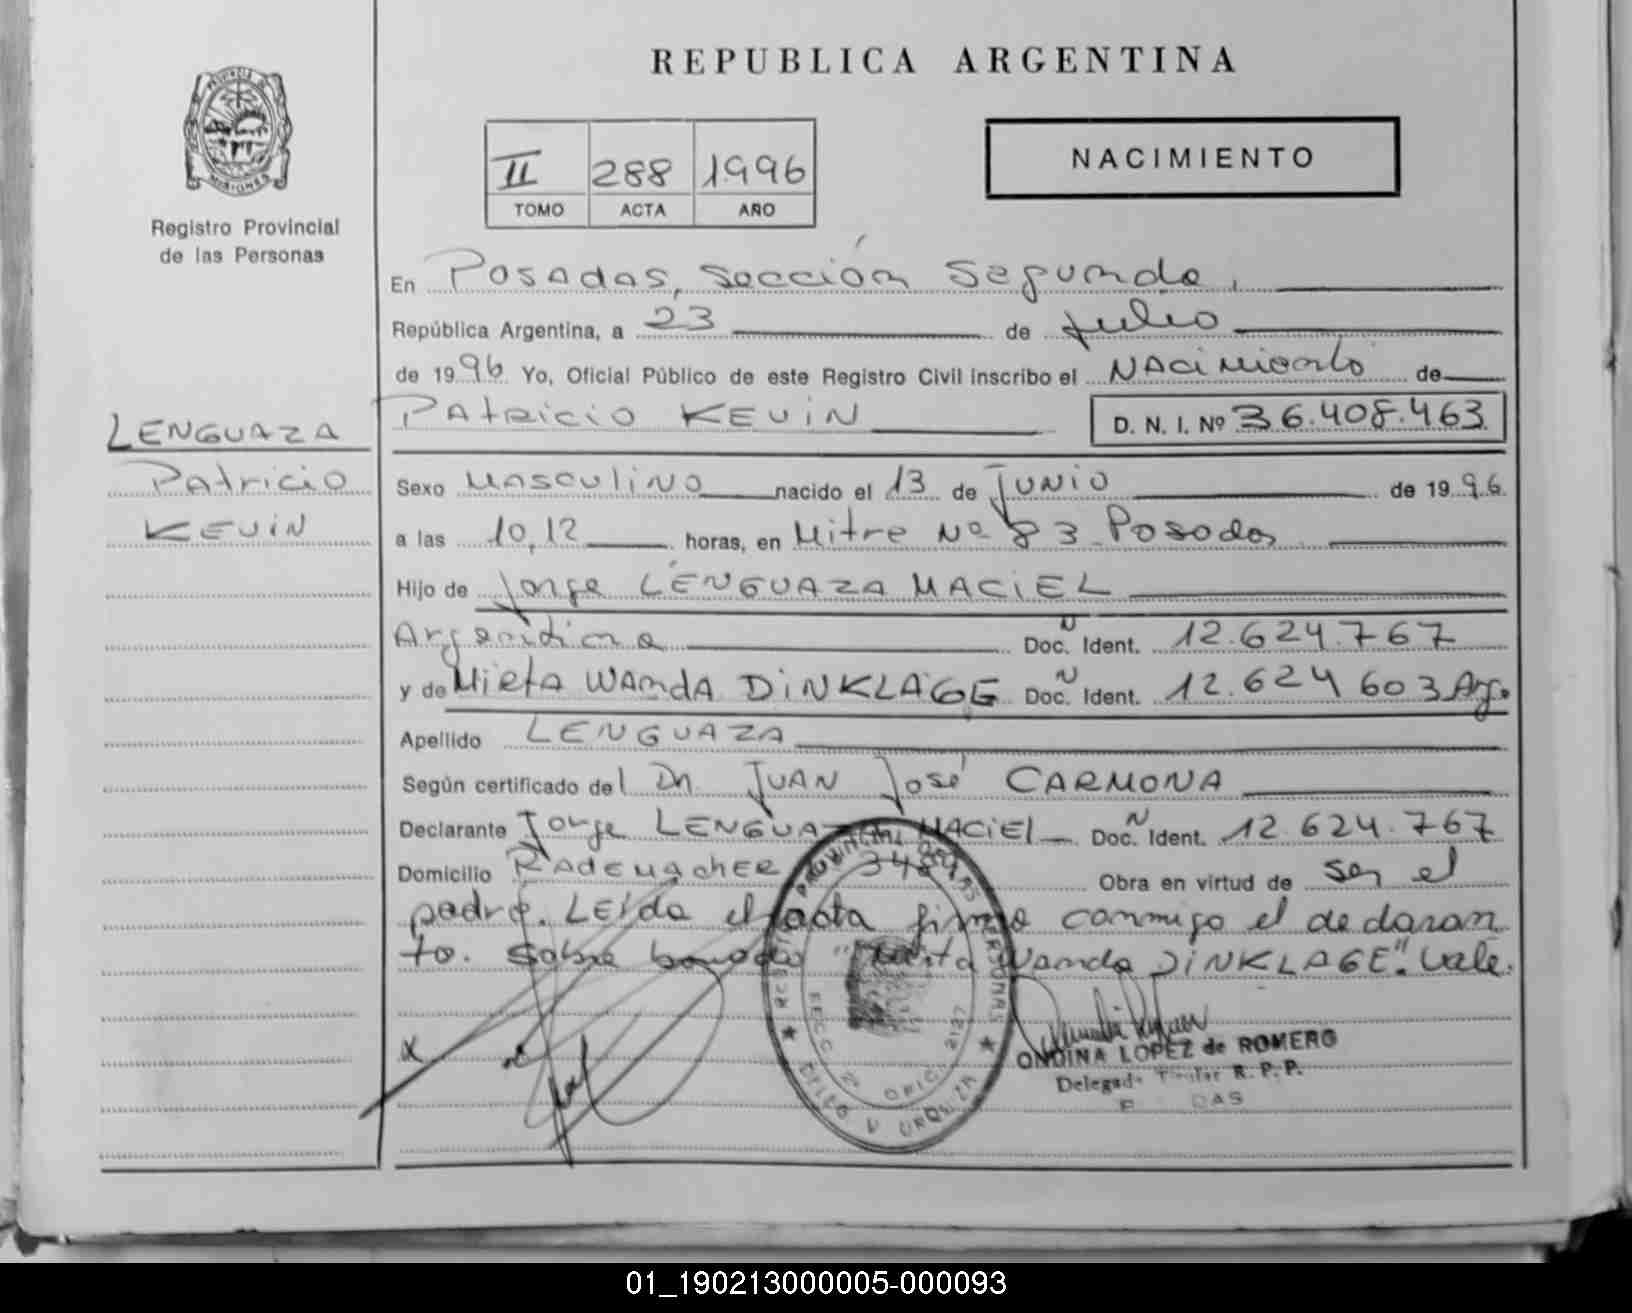 REPUBLICA ARGENTINA
PROVINCIA DE
MISIONES
Registro Provincial
de las Personas
II 288 1996
TOMO ACTA AÑO
NACIMIENTO
En Posadas, sección Segunda,
República Argentina, a 23 de Julio
de 1996 Yo, Oficial Público de este Registro Civil inscribo el NACimiento de
PAtRiCiO KEViN D. N. I. Nº 36.408.463
LENGUAZA
Patricio
KEViN
Sexo Masculino nacido el 13 de JUNiO de 1996
a las 10,12 horas, en Mitre Nº 83 Posadas
Hijo de Jorge LENGUAZA MACiEL
Argentina Doc. N Ident. 12.624.767
y de Mirta WANDA DiNKLAGE Doc. N Ident. 12.624 603 Arg.
Apellido LENGUAZA
Según certificado del Dr. JUAN José CARMONA
Declarante Jorge LENGUAZA MACiEl Doc. N Ident. 12.624.767
Domicilio RADEMAcHER 348 Obra en virtud de ser el
padre. LEida el acta firma conmigo el declaran
te. Sobre "Mirta Wanda DiNKLAGE". Vale.
x
ONDINA LOPEZ de ROMERO
Delegada Titular R. P. P.
01_190213000005-000093